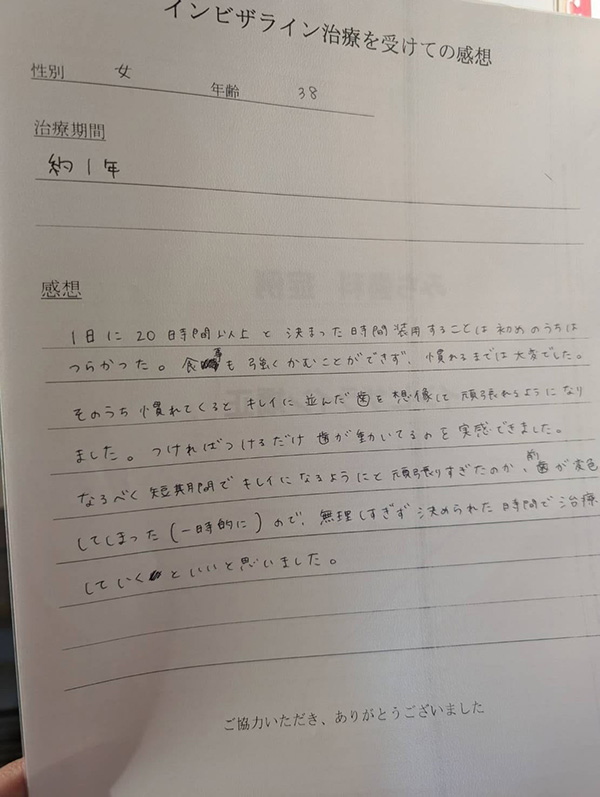 インビザライン治療を受けての感想
性別 女 年齢 38
治療期間
約1年
感想
1日に20時間以上と決まった時間装用することは初めのうちは
つらかった。食事も強くかむことができず、慣れるまでは大変でした。
そのうち慣れてくるとキレイに並んだ歯を想像して頑張れるようになり
ました。つければつけるだけ歯が動いてるのを実感できました。
なるべく短期間でキレイになるようにと頑張りすぎたのか、前歯が変色
してしまった(一時的に)ので、無理しすぎず決められた時間で治療
していくといいと思いました。
ご協力いただき、ありがとうございました